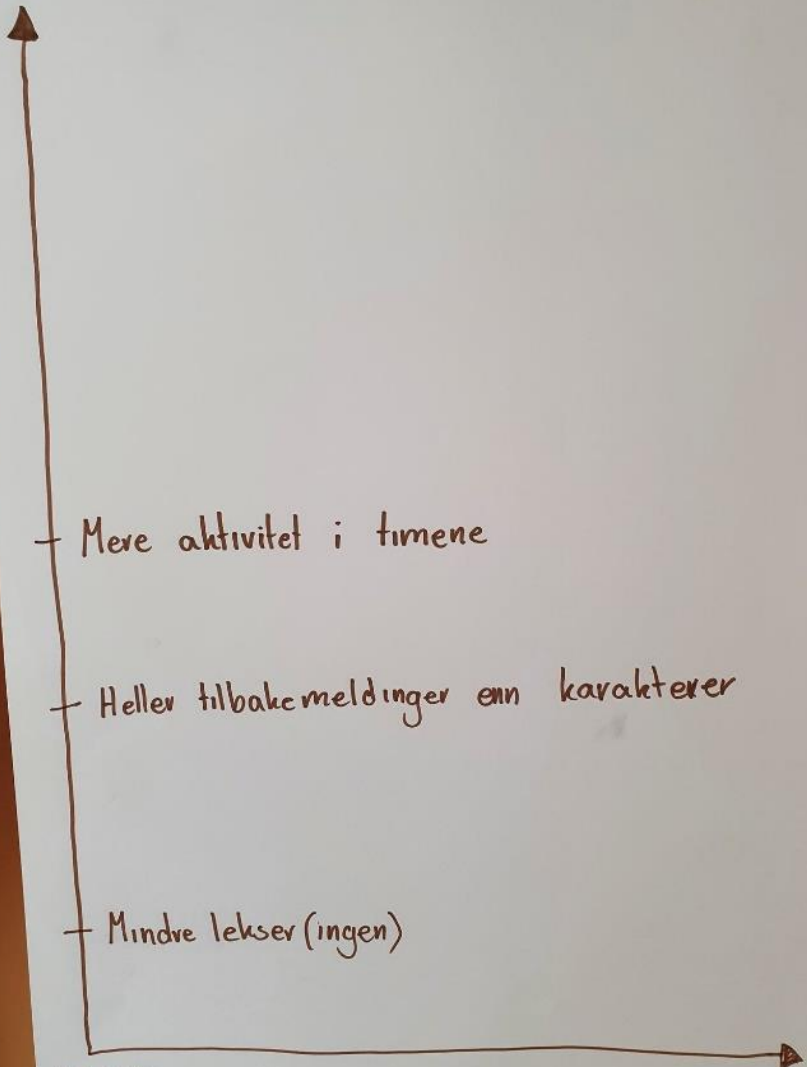 Mere aktivitet i timene
Heller tilbakemeldinger enn karakterer
Mindre lekser (ingen)